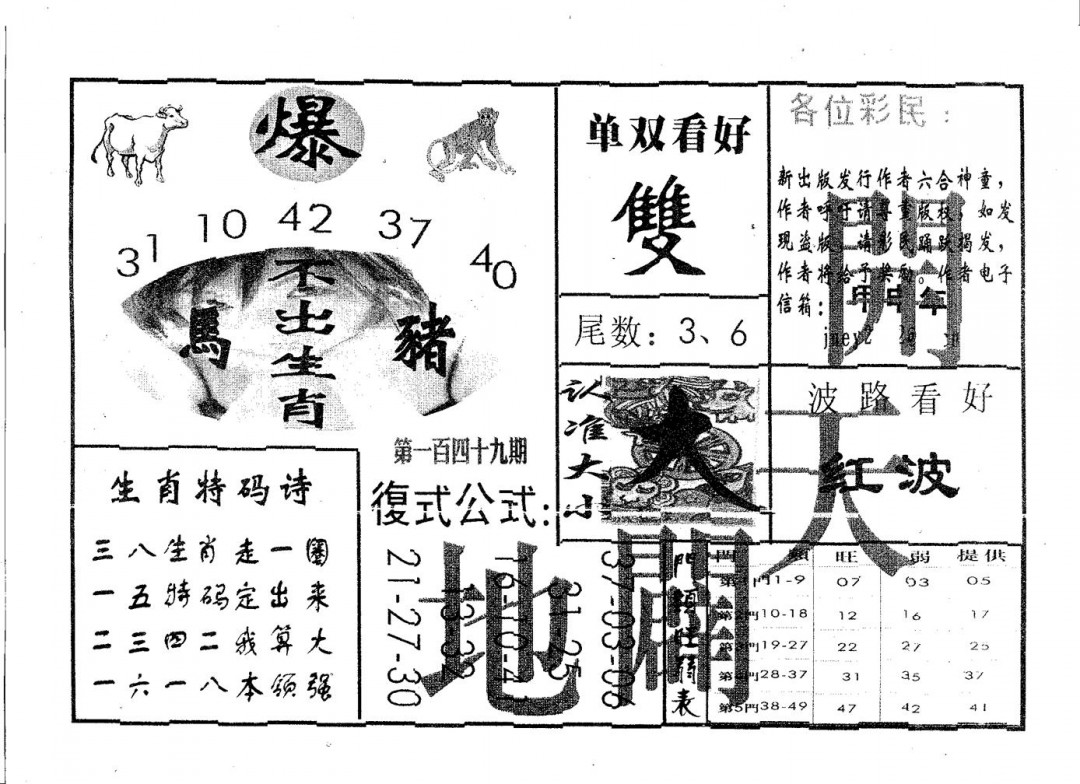 爆
31 10 42 37 40
不出生肖
馬
豬
第一百四十九期
单双看好
雙
尾数：3、6
认准大小
大
各位彩民：
新出版发行作者六合神童，
作者呼吁请尊重版权，如发
现盗版，请彩民踊跃揭发，
作者将给予奖励。作者电子
信箱：
甲申年
開
波路看好
红波
天
生肖特码诗
三八生肖走一圈
一五特码定出来
二三四二我算大
一六一八本领强
復式公式：
21-27-30
13-32
16-10-41
31-25
37-03-06
地
闢
門類旺弱表
門 類 旺 弱 提供
第1門1-9 07 03 05
第2門10-18 12 16 17
第3門19-27 22 27 25
第4門28-37 31 35 37
第5門38-49 47 42 41